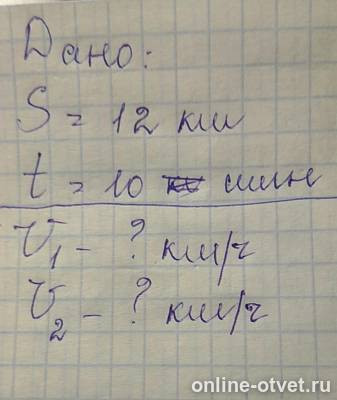 Дано:
S = 12 км
t = 10 мин
V₁ - ? км/ч
V₂ - ? км/ч
online-otvet.ru